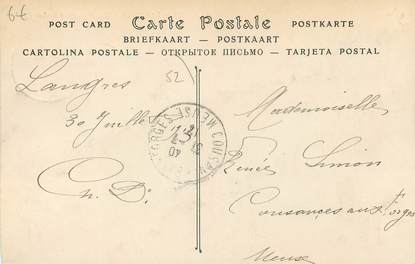 6 €
POST CARD Carte Postale POSTKARTE
BRIEFKAART — POSTKAART
CARTOLINA POSTALE — ОТКРЫТОЕ ПИСЬМО — TARJETA POSTAL
52
Langres
30 Juillet
Ch. D.
COUSANCES FORGES MEUSE
31
04
Mademoiselle
Renée Simon
Cousances aux Forges
Meuse